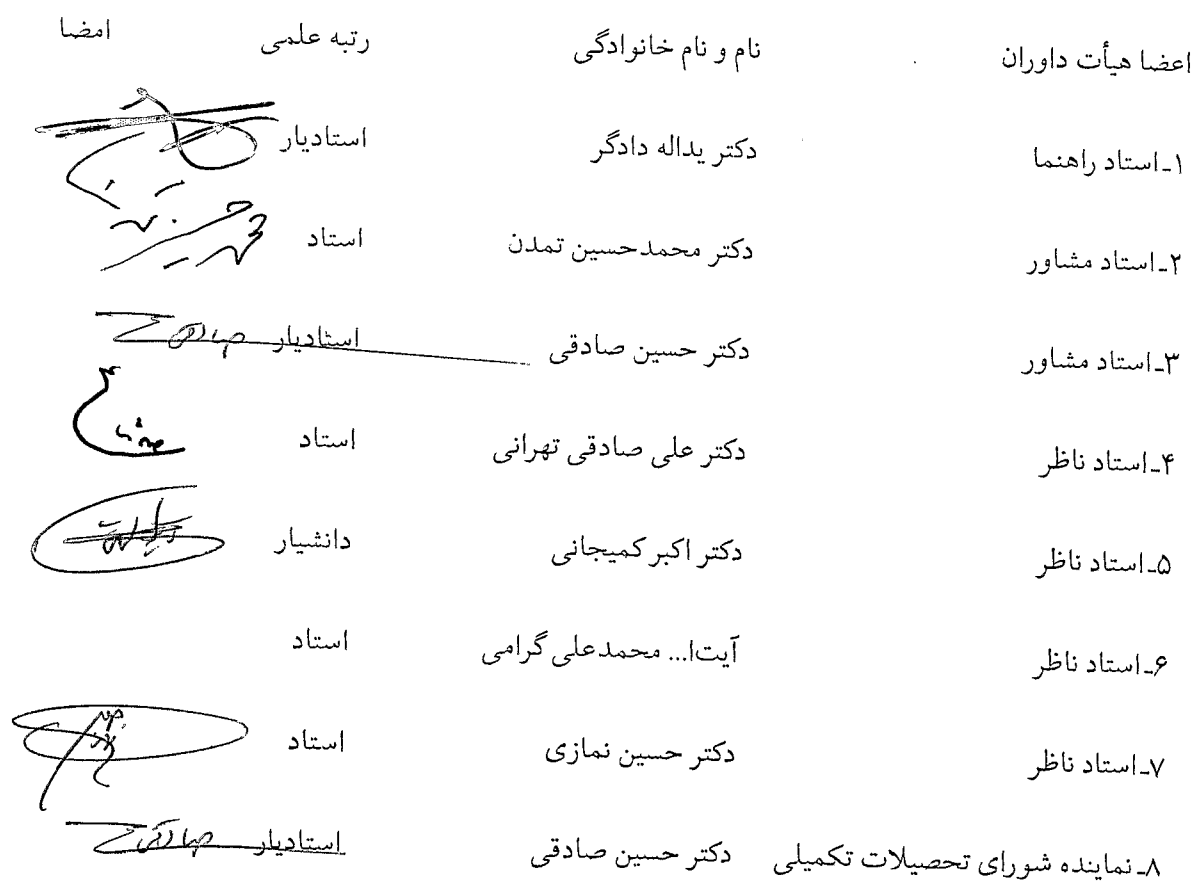 اعضا هیأت داوران نام و نام خانوادگی رتبه علمی امضا
۱ـ استاد راهنما دکتر یداله دادگر استادیار
۲ـ استاد مشاور دکتر محمدحسین تمدن استاد
۳ـ استاد مشاور دکتر حسین صادقی استادیار
۴ـ استاد ناظر دکتر علی صادقی تهرانی استاد
۵ـ استاد ناظر دکتر اکبر کمیجانی دانشیار
۶ـ استاد ناظر آیت‌ا... محمدعلی گرامی استاد
۷ـ استاد ناظر دکتر حسین نمازی استاد
۸ـ نماینده شورای تحصیلات تکمیلی دکتر حسین صادقی استادیار